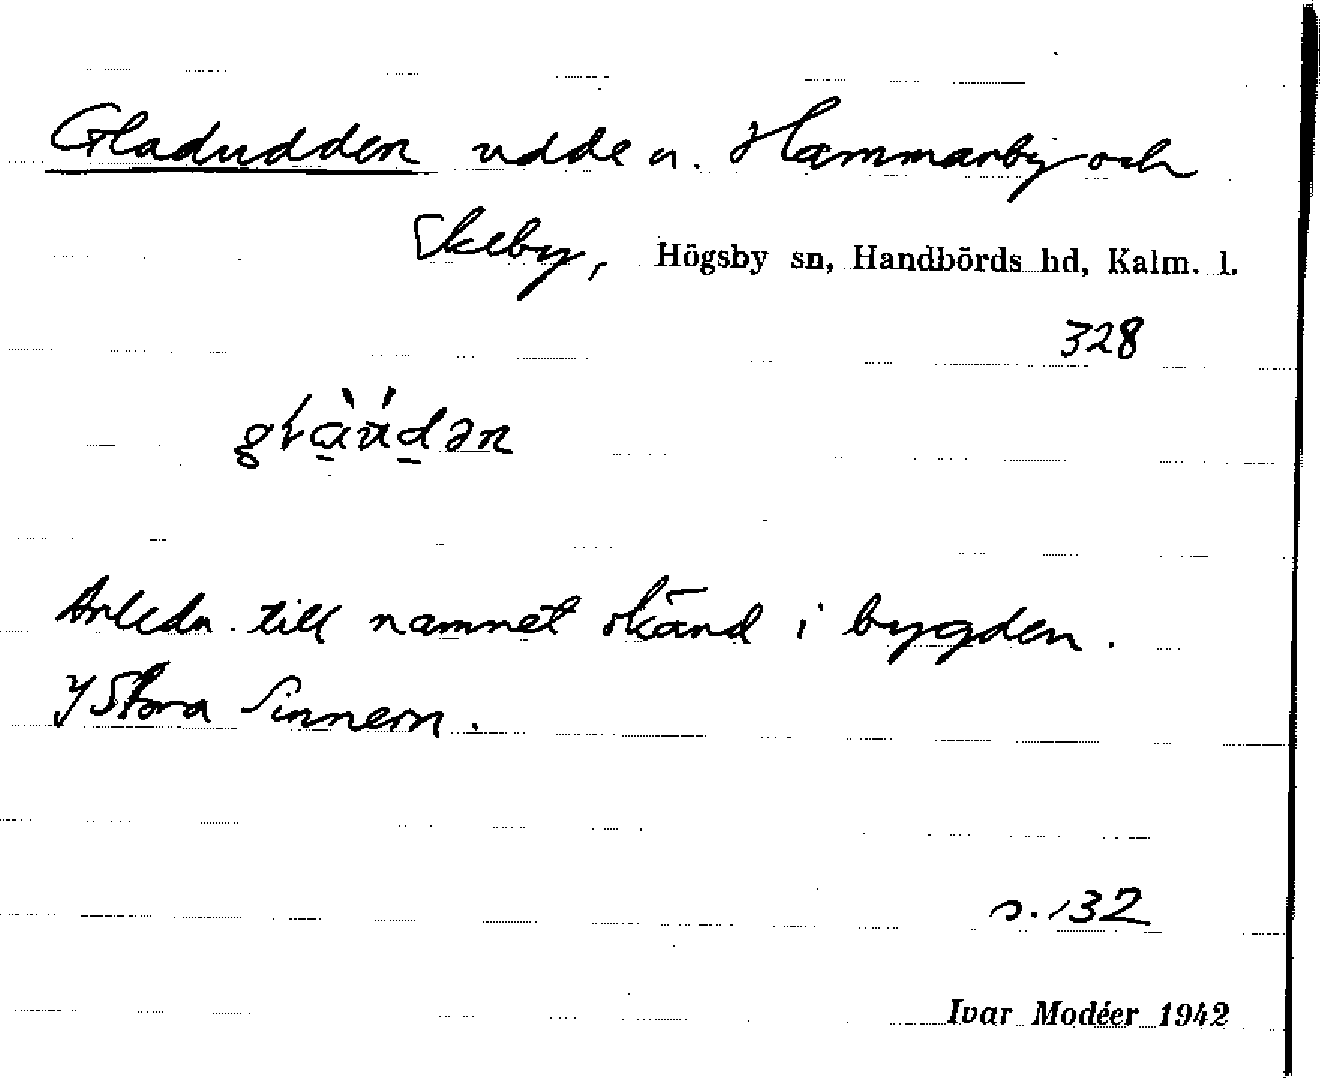 Gladudden udde u. Hammarby och
Skeby, Högsby sn, Handbörds hd, Kalm. l.
328
Anledn. till namnet okänd i bygden.
I Stora Sinnern.
s. 132
Ivar Modéer 1942